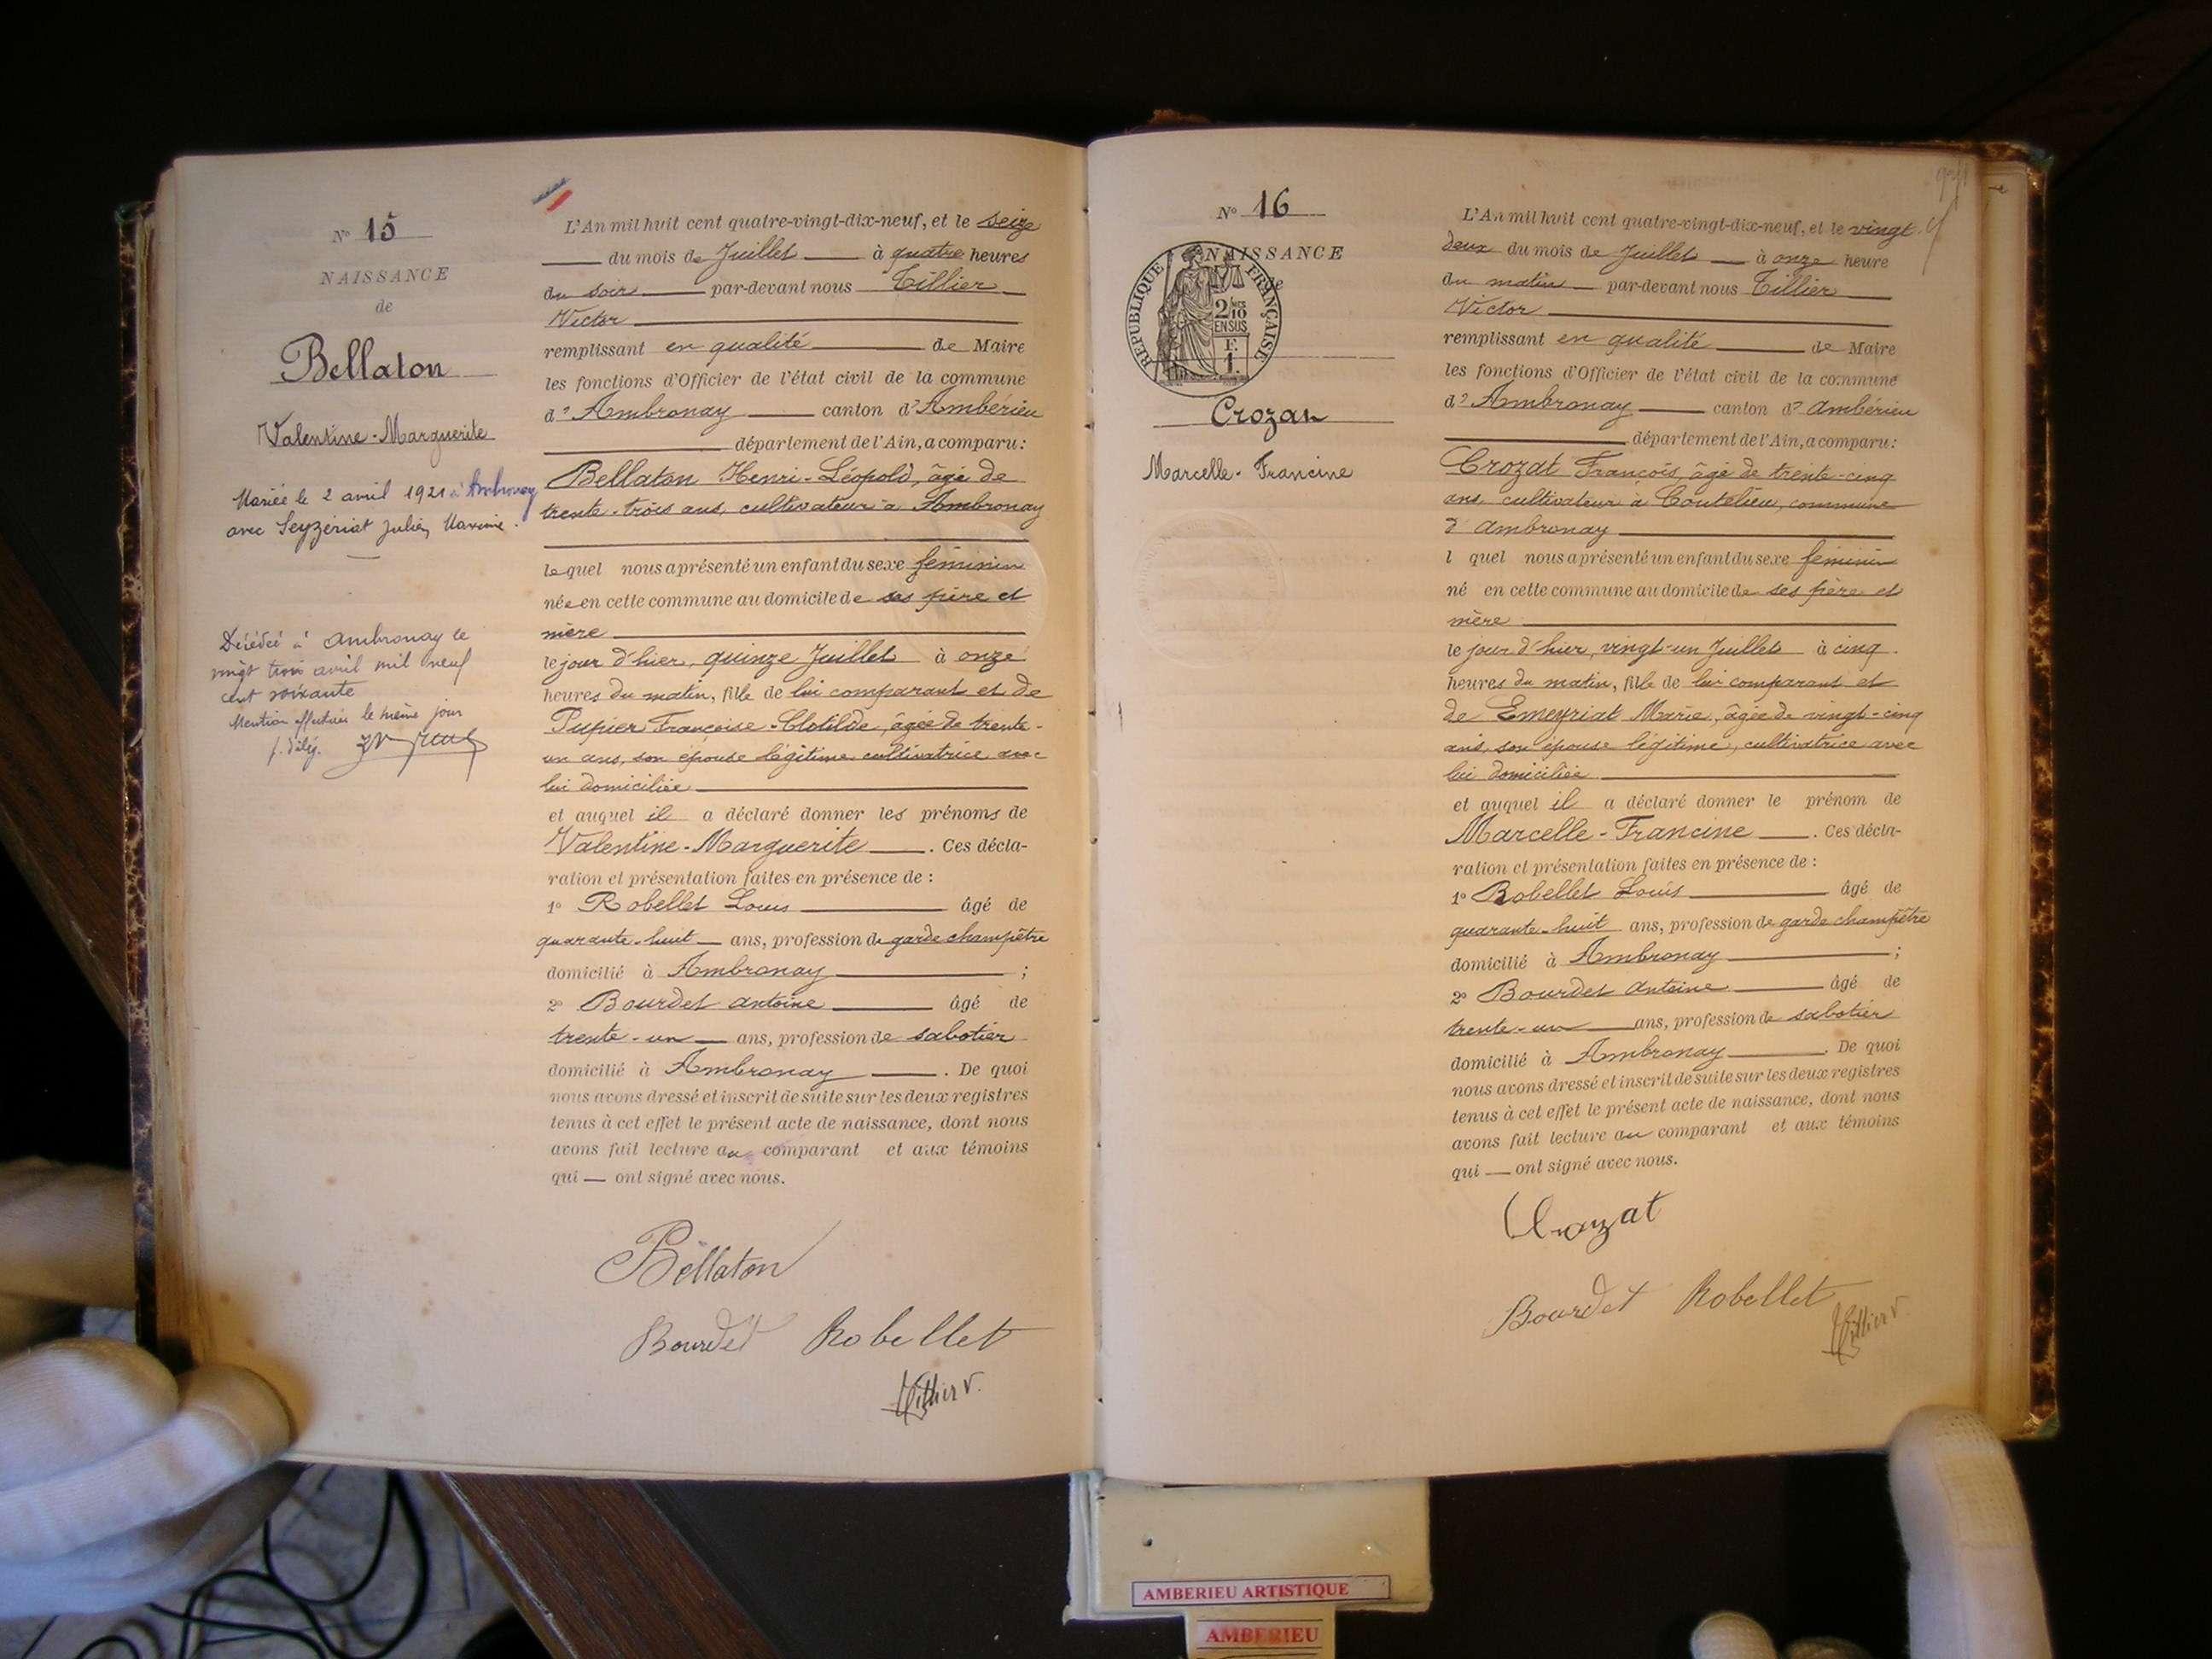 N° 15
NAISSANCE
de
Bellaton
Valentine-Marguerite
Mariée le 2 avril 1921 à Ambronay
avec Seyzériat Julien Maxime.
Décédée à Ambronay le
vingt trois avril mil neuf
cent soixante
Mention effectuée le même jour
L'An mil huit cent quatre-vingt-dix-neuf, et le seize
du mois de Juillet à quatre heures
du soir par-devant nous Tillier
Victor
remplissant en qualité de Maire
les fonctions d'Officier de l'état civil de la commune
d'Ambronay canton d'Ambérieu
département de l'Ain, a comparu:
Bellaton Henri-Léopold, âgé de
trente-trois ans, cultivateur à Ambronay
lequel nous a présenté un enfant du sexe féminin
née en cette commune au domicile de ses père et
mère
le jour d'hier, quinze Juillet à onze
heures du matin, fille de lui comparant et de
Pupier Françoise-Clotilde, âgée de trente-
un ans, son épouse légitime, cultivatrice avec
lui domiciliée
et auquel il a déclaré donner les prénoms de
Valentine-Marguerite. Ces décla-
ration et présentation faites en présence de :
1° Robellet Louis âgé de
quarante-huit ans, profession de garde champêtre
domicilié à Ambronay ;
2° Bourdet Antoine âgé de
trente-un ans, profession de sabotier
domicilié à Ambronay. De quoi
nous avons dressé et inscrit de suite sur les deux registres
tenus à cet effet le présent acte de naissance, dont nous
avons fait lecture au comparant et aux témoins
qui — ont signé avec nous.
Bellaton
Bourdet Robellet
Tillier V.
N° 16
NAISSANCE
de
RÉPUBLIQUE FRANÇAISE
2/10
EN SUS
F.
1.
Crozan
Marcelle-Francine
L'An mil huit cent quatre-vingt-dix-neuf, et le vingt-
deux du mois de Juillet à onze heure
du matin par-devant nous Tillier
Victor
remplissant en qualité de Maire
les fonctions d'Officier de l'état civil de la commune
d'Ambronay canton d'Ambérieu
département de l'Ain, a comparu:
Crozat François, âgé de trente-cinq
ans, cultivateur à Coutelieu, commune
d'Ambronay
l quel nous a présenté un enfant du sexe féminin
né en cette commune au domicile de ses père et
mère
le jour d'hier, vingt-un Juillet à cinq
heures du matin, fille de lui comparant et
de Emeyriat Marie, âgée de vingt-cinq
ans, son épouse légitime, cultivatrice avec
lui domiciliée
et auquel il a déclaré donner le prénom de
Marcelle-Francine. Ces décla-
ration et présentation faites en présence de :
1° Robellet Louis âgé de
quarante-huit ans, profession de garde champêtre
domicilié à Ambronay ;
2° Bourdet Antoine âgé de
trente-un ans, profession de sabotier
domicilié à Ambronay. De quoi
nous avons dressé et inscrit de suite sur les deux registres
tenus à cet effet le présent acte de naissance, dont nous
avons fait lecture au comparant et aux témoins
qui — ont signé avec nous.
Crozat
Bourdet Robellet
Tillier V.
AMBERIEU ARTISTIQUE
AMBERIEU